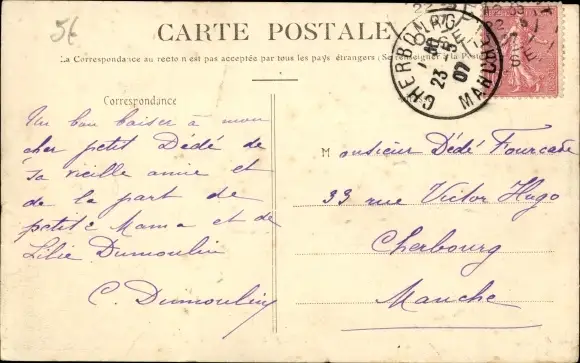 5€
CARTE POSTALE
La Correspondance au recto n'est pas acceptée par tous les pays étrangers (Se renseigner à la Poste)
CHERBOURG
23 -3
07
MANCHE
Correspondance
Un bon baiser à mon
cher petit Dédé de
sa vieille amie et
de la part de
petite Mama et de
Lilie Dumoulin
C. Dumoulin
Monsieur Dédé Fourcade
33 rue Victor Hugo
Cherbourg
Manche